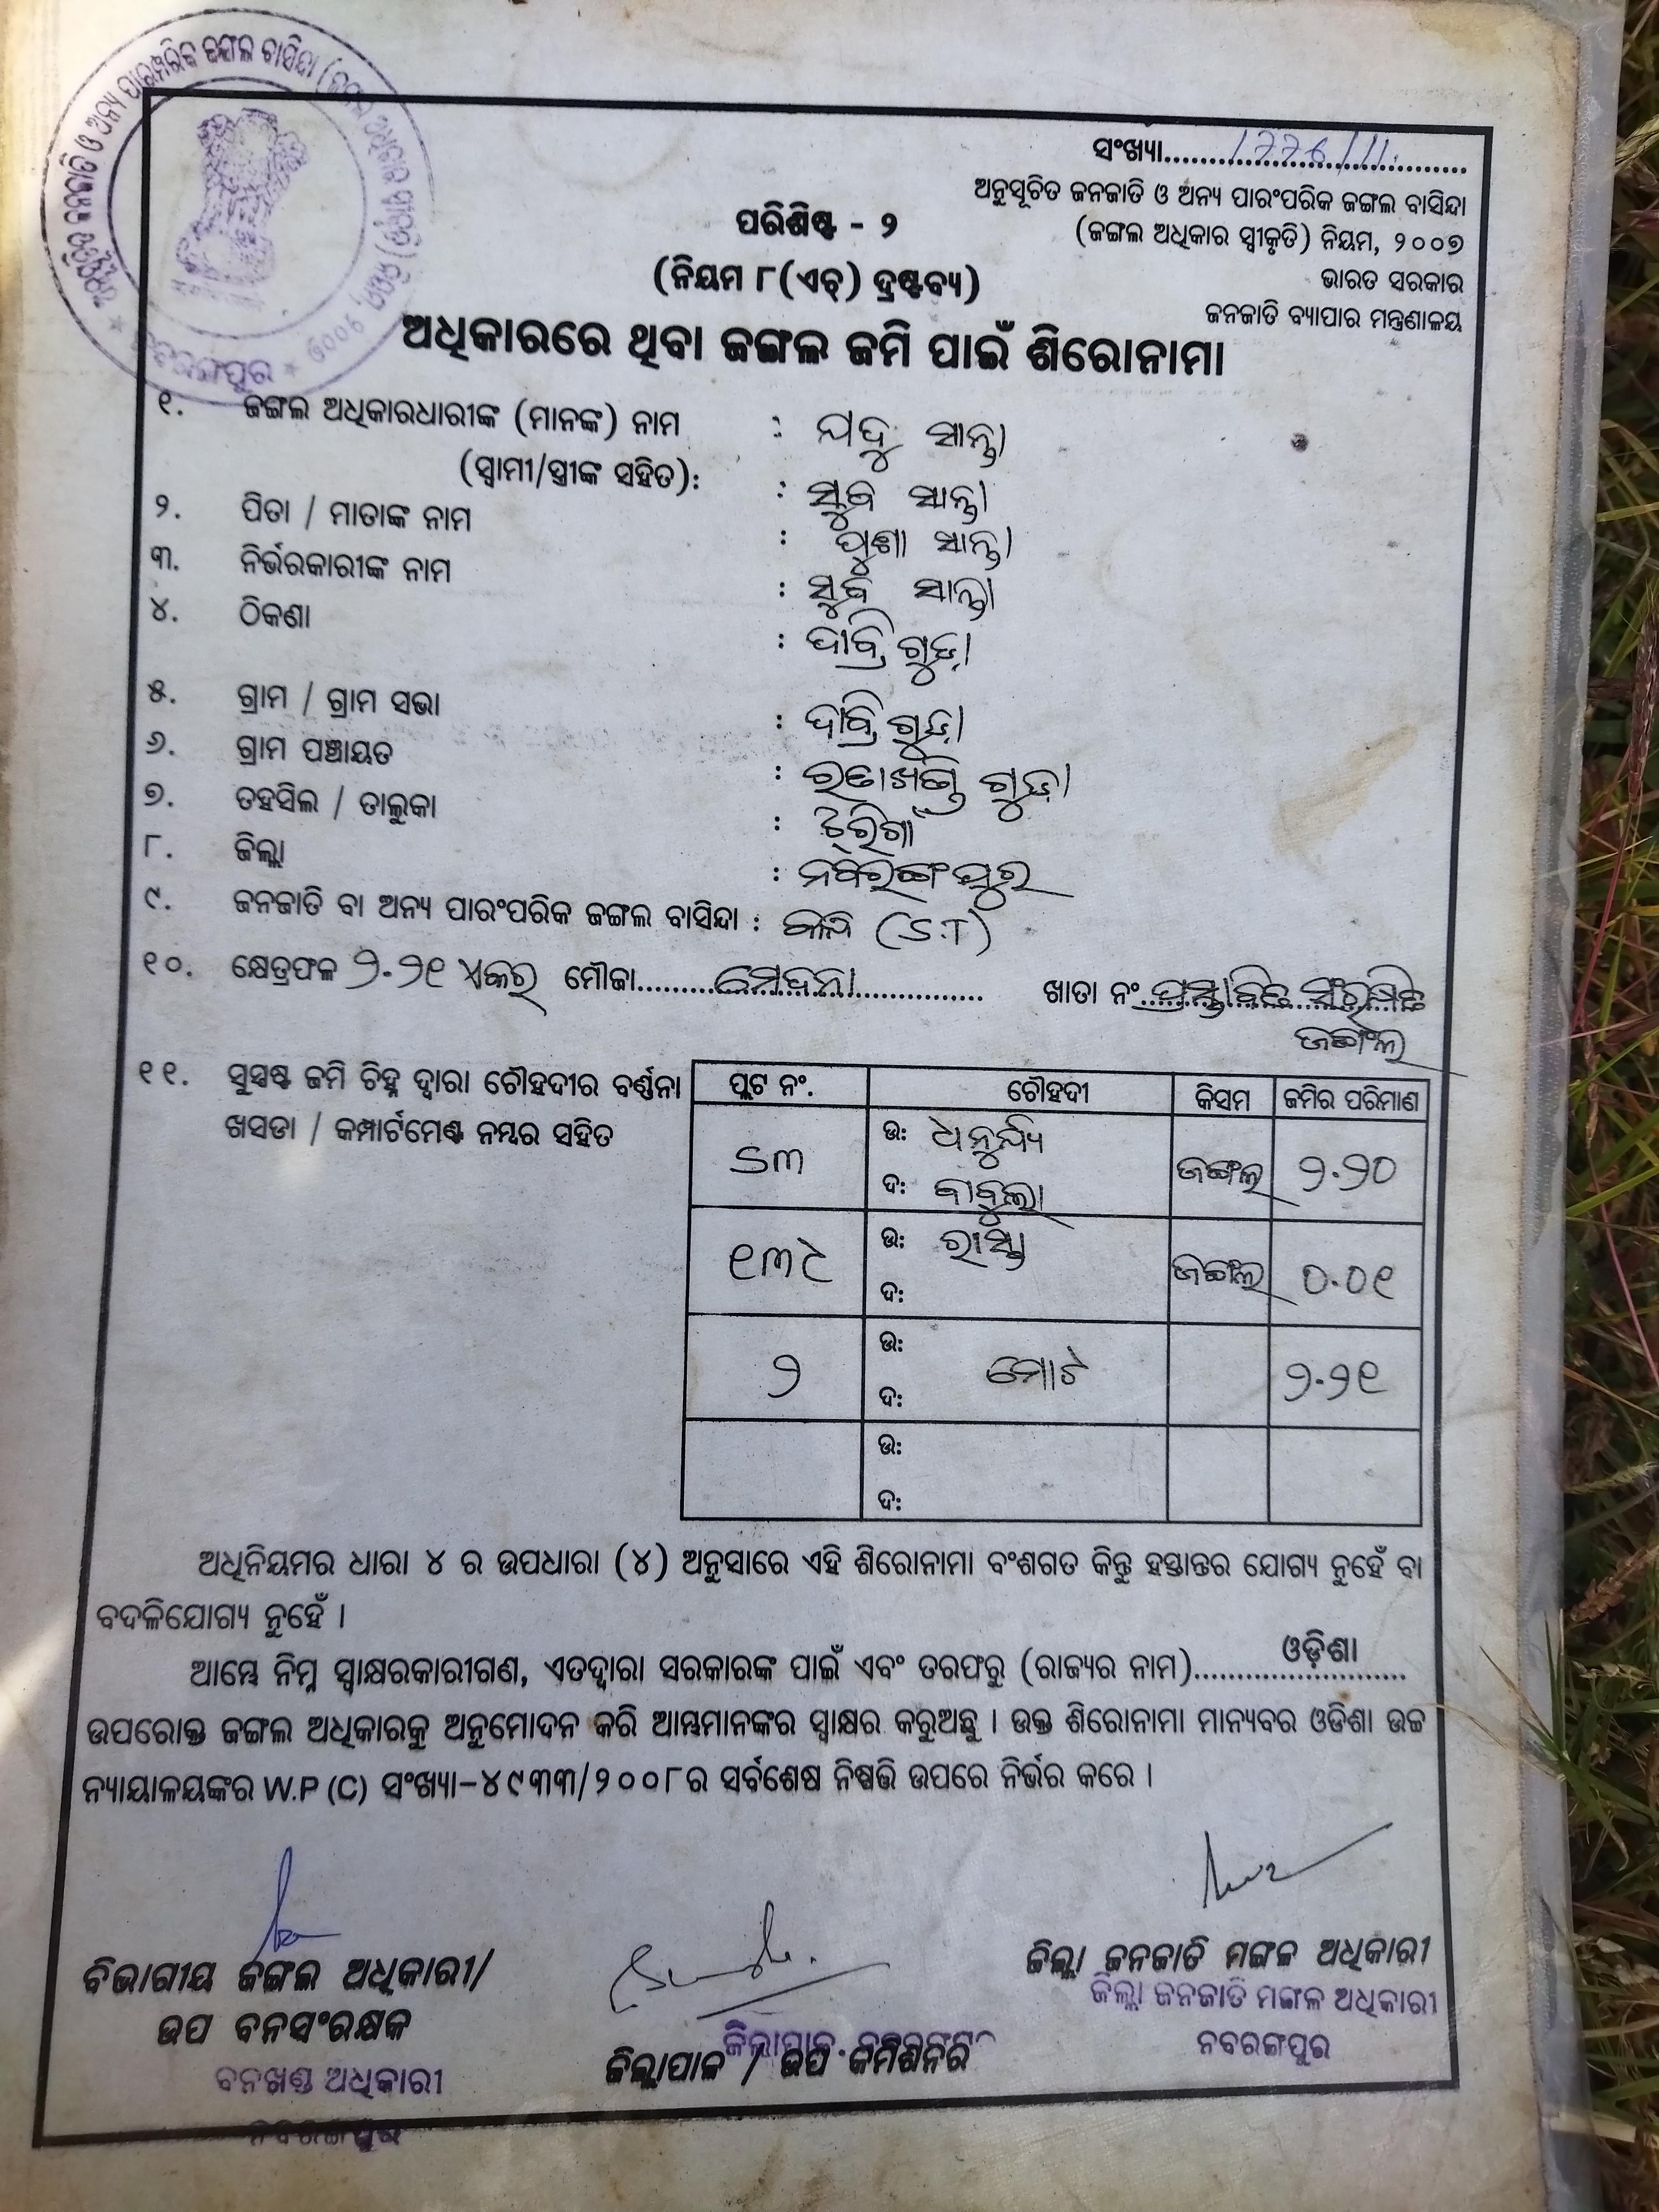 ସଂଖ୍ୟା
ଅନୁସୂଚିତ ଜନଜାତି ଓ ଅନ୍ୟ ପାରଂପରିକ ଜଙ୍ଗଲ ବାସିନ୍ଦା
(ଜଙ୍ଗଲ ଅଧିକାର ସ୍ୱୀକୃତି) ନିୟମ, ୨୦୦୭
ଭାରତ ସରକାର
ଜନଜାତି ବ୍ୟାପାର ମନ୍ତ୍ରଣାଳୟ
ପରିଶିଷ୍ଟ - ୨
(ନିୟମ ୮(ଏଚ୍) ଦ୍ରଷ୍ଟବ୍ୟ)
ଅଧିକାରରେ ଥିବା ଜଙ୍ଗଲ ଜମି ପାଇଁ ଶିରୋନାମା
୧. ଜଙ୍ଗଲ ଅଧିକାରଧାରୀଙ୍କ (ମାନଙ୍କ) ନାମ : ଯଦୁ ସାନ୍ତା
(ସ୍ୱାମୀ/ସ୍ତ୍ରୀଙ୍କ ସହିତ): : ସୁବ ସାନ୍ତା
୨. ପିତା / ମାତାଙ୍କ ନାମ : ସାନ୍ତା
୩. ନିର୍ଭରକାରୀଙ୍କ ନାମ : ସୁବ ସାନ୍ତା
୪. ଠିକଣା :
୫. ଗ୍ରାମ / ଗ୍ରାମ ସଭା :
୬. ଗ୍ରାମ ପଞ୍ଚାୟତ : ଗୁଡ଼ା
୭. ତହସିଲ / ତାଲୁକା :
୮. ଜିଲ୍ଲା : ନବରଙ୍ଗପୁର
୯. ଜନଜାତି ବା ଅନ୍ୟ ପାରଂପରିକ ଜଙ୍ଗଲ ବାସିନ୍ଦା : କନ୍ଧ (S.T)
୧୦. କ୍ଷେତ୍ରଫଳ ୨.୨୧ ଏକର ମୌଜା ଖାତା ନଂ ପ୍ରସ୍ତାବିତ ସଂରକ୍ଷିତ
ଜଙ୍ଗଲ
୧୧. ସୁସ୍ପଷ୍ଟ ଜମି ଚିହ୍ନ ଦ୍ୱାରା ଚୌହଦୀର ବର୍ଣ୍ଣନା
ଖସଡା / କମ୍ପାର୍ଟମେଣ୍ଟ ନମ୍ବର ସହିତ
ପ୍ଲଟ ନଂ. ଚୌହଦୀ କିସମ ଜମିର ପରିମାଣ
ଉ:
ଦ: ଜଙ୍ଗଲ ୨.୨୦
ଉ: ରାସ୍ତା
ଦ: ଜଙ୍ଗଲ ୦.୦୧
୨ ଉ: ମୋଟ ୨.୨୧
ଦ:
ଉ:
ଦ:
ଅଧିନିୟମର ଧାରା ୪ ର ଉପଧାରା (୪) ଅନୁସାରେ ଏହି ଶିରୋନାମା ବଂଶଗତ କିନ୍ତୁ ହସ୍ତାନ୍ତର ଯୋଗ୍ୟ ନୁହେଁ ବା
ବଦଳିଯୋଗ୍ୟ ନୁହେଁ ।
ଆମ୍ଭେ ନିମ୍ନ ସ୍ୱାକ୍ଷରକାରୀଗଣ, ଏତଦ୍ୱାରା ସରକାରଙ୍କ ପାଇଁ ଏବଂ ତରଫରୁ (ରାଜ୍ୟର ନାମ) ଓଡ଼ିଶା
ଉପରୋକ୍ତ ଜଙ୍ଗଲ ଅଧିକାରକୁ ଅନୁମୋଦନ କରି ଆମ୍ଭମାନଙ୍କର ସ୍ୱାକ୍ଷର କରୁଅଛୁ । ଉକ୍ତ ଶିରୋନାମା ମାନ୍ୟବର ଓଡିଶା ଉଚ୍ଚ
ନ୍ୟାୟାଳୟଙ୍କର W.P (C) ସଂଖ୍ୟା-୪୯୩୩/୨୦୦୮ର ସର୍ବଶେଷ ନିଷ୍ପତ୍ତି ଉପରେ ନିର୍ଭର କରେ ।
ବିଭାଗୀୟ ଜଙ୍ଗଲ ଅଧିକାରୀ/
ଉପ ବନସଂରକ୍ଷକ
ବନଖଣ୍ଡ ଅଧିକାରୀ
ନବରଙ୍ଗପୁର
ଜିଲ୍ଲାପାଳ / ଉପ କମିଶନର
ଜିଲ୍ଲା ଜନଜାତି ମଙ୍ଗଳ ଅଧିକାରୀ
ଜିଲ୍ଲା ଜନଜାତି ମଙ୍ଗଳ ଅଧିକାରୀ
ନବରଙ୍ଗପୁର